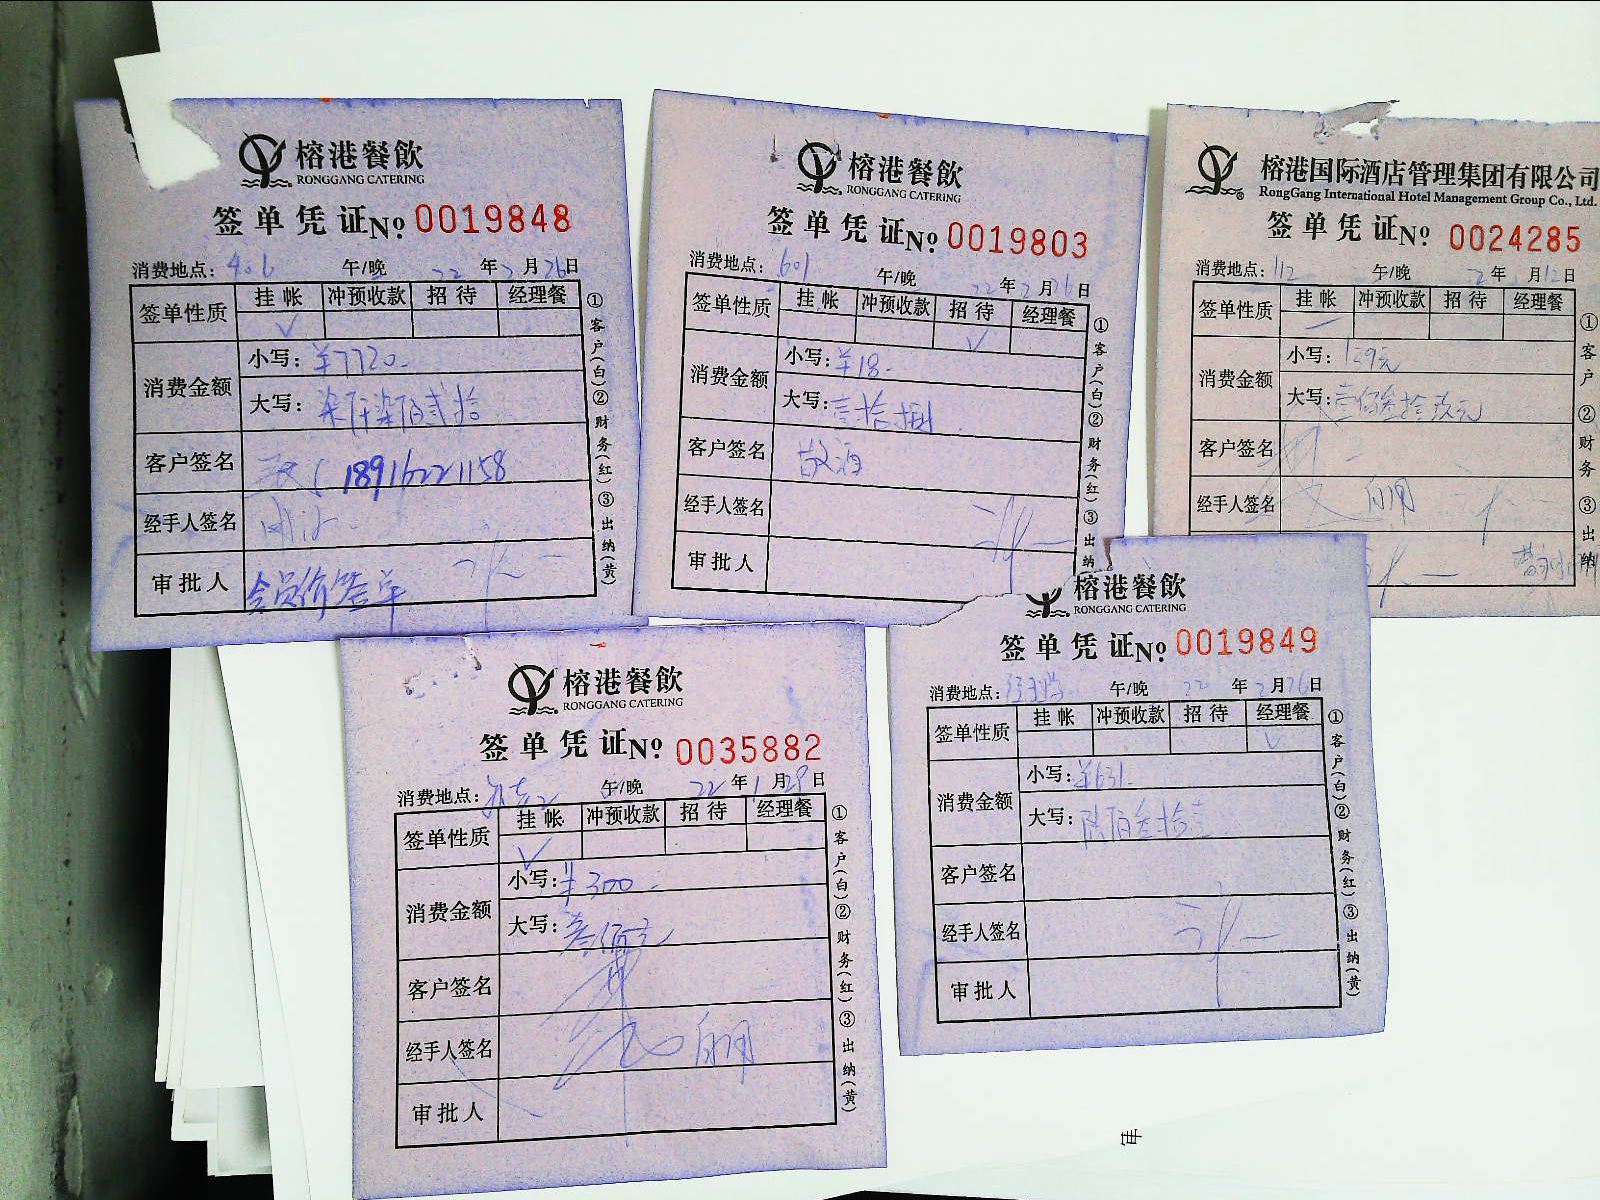 榕港餐飲
RONGGANG CATERING
签单凭证No. 0019848
消费地点: 406 午/晚 22年2月26日
签单性质 挂帐 冲预收款 招待 经理餐
√
消费金额 小写: ¥7720.
大写: 柒仟柒佰贰拾
客户签名 18916221158
经手人签名
审批人 会员价签单
①客户(白)②财务(红)③出纳(黄)
榕港餐飲
RONGGANG CATERING
签单凭证No. 0019803
消费地点: 601 午/晚 22年2月26日
签单性质 挂帐 冲预收款 招待 经理餐
√
消费金额 小写: ¥18.
大写: 壹拾捌
客户签名 敬酒
经手人签名
审批人
①客户(白)②财务(红)③出纳
榕港国际酒店管理集团有限公司
RongGang International Hotel Management Group Co., Ltd.
签单凭证No. 0024285
消费地点: 112 午/晚 22年 月12日
签单性质 挂帐 冲预收款 招待 经理餐
消费金额 小写: 139元
大写: 壹佰叁拾玖元
客户签名
经手人签名
①客户②财务③出纳
榕港餐飲
RONGGANG CATERING
签单凭证No. 0035882
消费地点: 午/晚 22年1月29日
签单性质 挂帐 冲预收款 招待 经理餐
√
消费金额 小写: ¥300.
大写: 叁佰元
客户签名
经手人签名
审批人
①客户(白)②财务(红)③出纳(黄)
榕港餐飲
RONGGANG CATERING
签单凭证No. 0019849
消费地点: 午/晚 22年2月26日
签单性质 挂帐 冲预收款 招待 经理餐
√
消费金额 小写: ¥631.
大写: 陆佰叁拾壹
客户签名
经手人签名
审批人
①客户(白)②财务(红)③出纳(黄)